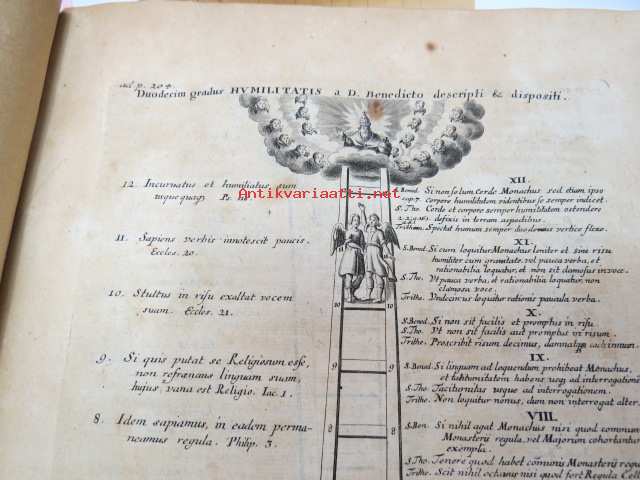 ad p. 204.
Duodecim gradus HVMILITATIS a D. Benedicto descripti & dispositi.
12. Incuruatus et humiliatus sum
usquequaq; Ps.
11. Sapiens verbis innotescit paucis.
Eccles. 20.
10. Stultus in risu exaltat vocem
suam. Eccles. 21.
9. Si quis putat se Religiosum esse,
non refrænans linguam suam,
hujus, vana est Religio. Iac. 1.
8. Idem sapiamus, in eadem perma-
neamus regula. Philip. 3.
10
10
9
9
8
8
XII.
S. Bened. Si non solum Corde Monachus sed etiam ipso
cap. 7. corpore humilitatem videntibus se semper indicet.
S. Tho. Corde et corpore semper humilitatem ostendere
2.2. q. 161. defixis in terram aspectibus.
Trithem. Spectat humum semper duodenus vertice flexo.
XI.
S. Bened. Si cum loquitur Monachus leniter et sine risu
humiliter cum grauitate, vel pauca verba, et
rationabilia loquatur, et non sit clamosus in voce.
S. Tho. Vt pauca verba, et rationabilia loquatur, non
clamosa voce.
Trithe. Vndecimus loquitur rationis pauula verba.
X.
S. Bened. Si non sit facilis et promptus in risu.
S. Tho. Vt non sit facilis aut promptus in risum.
Trithe. Proscribit risum decimus, damnatq; cachinnum.
IX.
S. Bened. Si linguam ad loquendum prohibeat Monachus,
et taciturnitatem habens usq; ad interrogation
S. Tho. Taciturnitas usque ad interrogationem.
Trithe. Non loquitur nonus, dum non interrogat alter.
VIII.
S. Ben. Si nihil agat Monachus nisi quod commun
Monasterij regula, vel Majorum cohortantur
exempla.
S. Tho. Tenere quod habet cõmunis Monasterij reg
Trithe. Scit nihil octauus nisi quod fert Regula Cell
Antikvariaatti.net